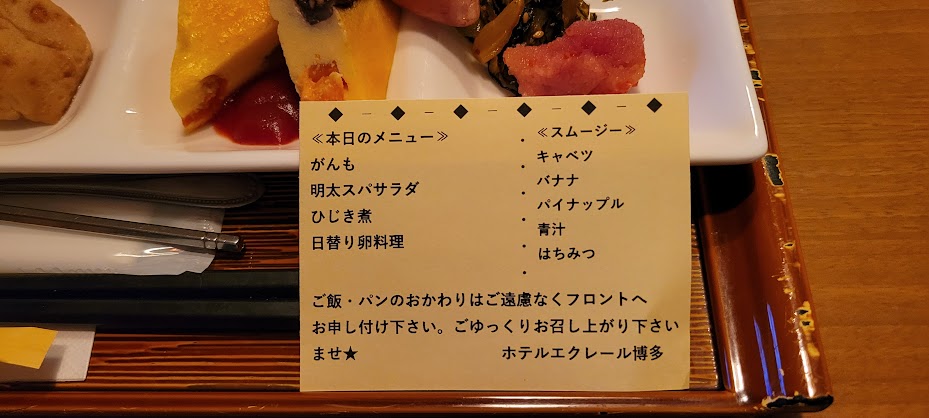 ≪本日のメニュー≫
がんも
明太スパサラダ
ひじき煮
日替り卵料理
≪スムージー≫
キャベツ
バナナ
パイナップル
青汁
はちみつ
ご飯・パンのおかわりはご遠慮なくフロントへ
お申し付け下さい。ごゆっくりお召し上がり下さい
ませ★ ホテルエクレール博多